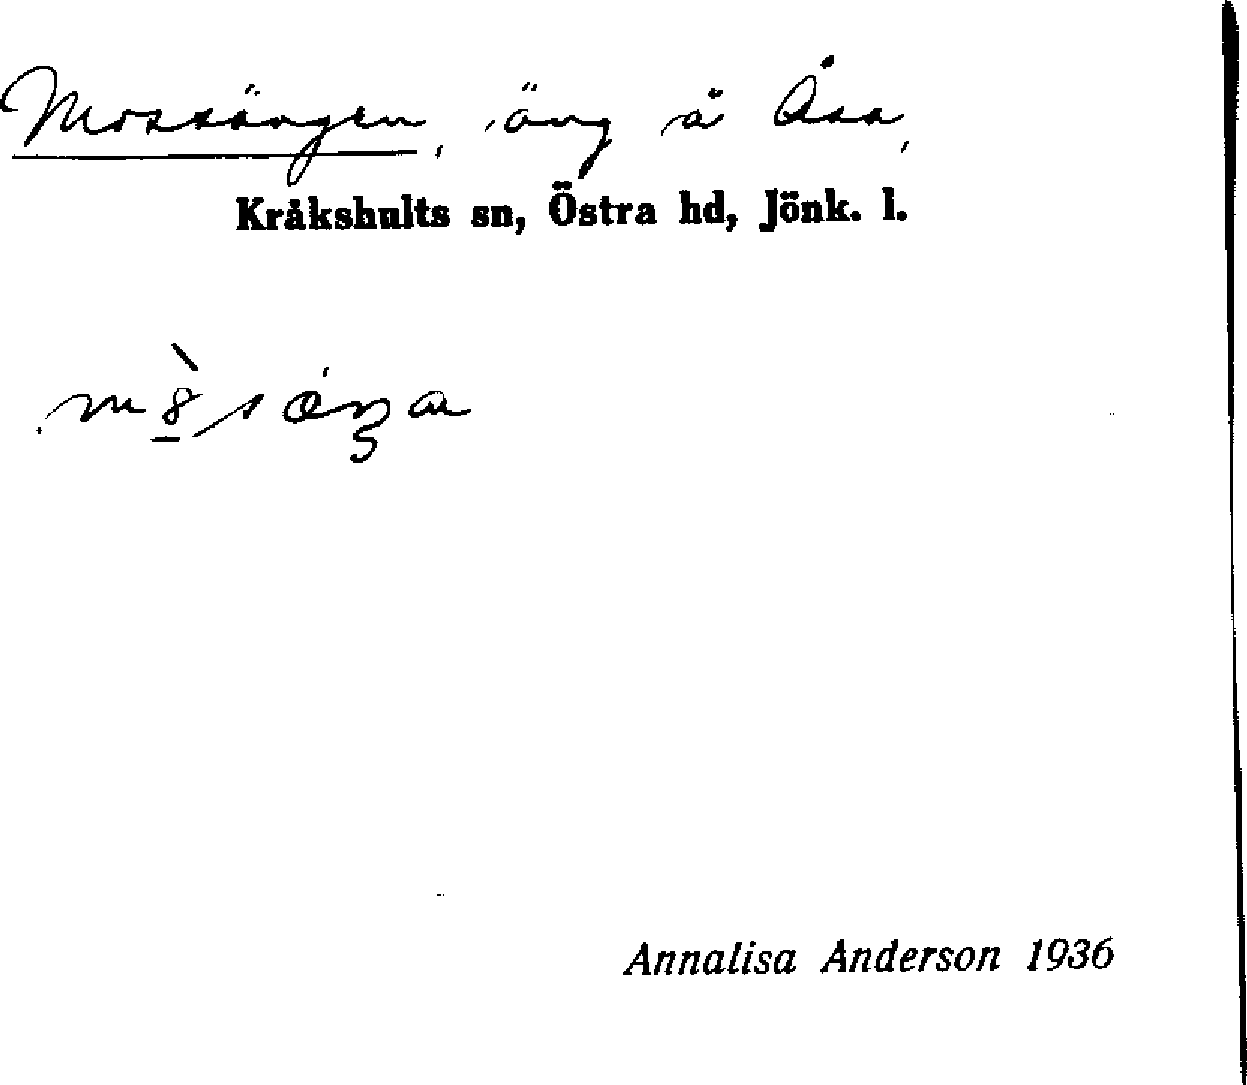 Mossängen, äng å Åsa,
Kråkshults sn, Östra hd, Jönk. l.
Annalisa Anderson 1936